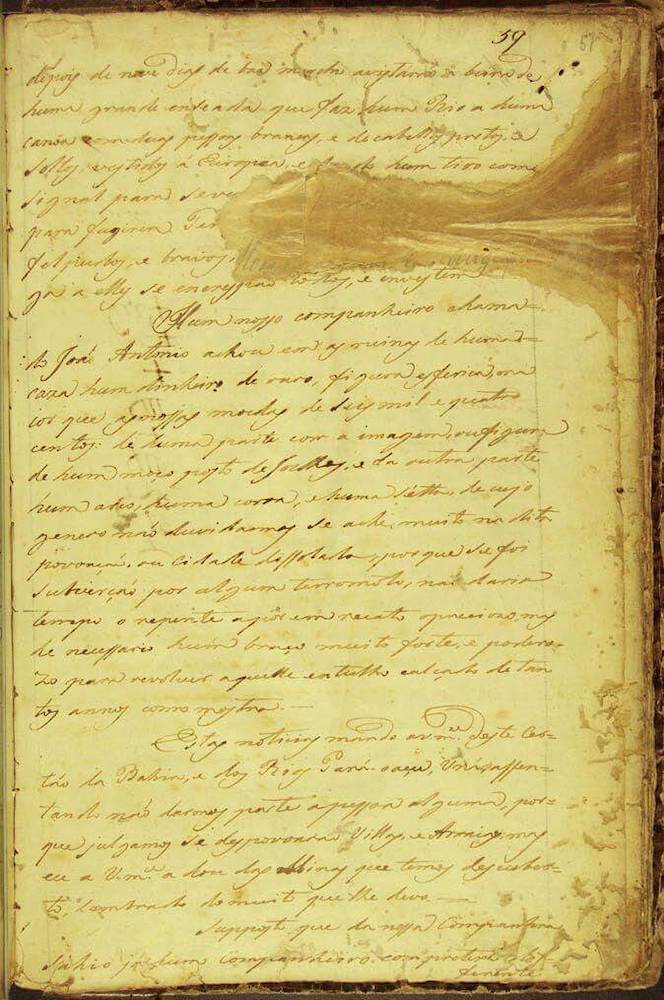 59
57
depois de nove dias de boa marcha avistamos a beira de
huma grande enseada que faz hum Rio a huma
canoa com duas pessoas brancas, e de cabellos pretos, e
soltos, vestidos á Europea, e hum tiro como
signal para se ve
para fugirem Ter
felpudos, e bravos,
ga a elles se encrespaõ todos, e investem
Hum nosso companheiro chama-
do Joaõ Antonio achou em as ruinas de huma
caza hum dinheiro de ouro, figura esferica, ma
ior que as nossas moedas de seis mil e quatro
centos: de huma parte com a imagem, ou figura
de hum moço posto de joelhos, e da outra parte
hum arco, huma coroa, e huma sétta, de cujo
genero naõ duvidamos se ache muito na dita
povoaçaõ, ou Cidade dissolada, por que se foi
subversaõ por algum terremoto, naõ daria
tempo o repente a pôr em recato o precioso, mas
he necessario hum braço muito forte, e podero-
zo para revolver aquelle entulho calçado de tan
tos annos como mostra.
Estas noticias mando a v.m.ce deste Cer-
taõ da Bahia, e dos Rios Pará-oaçu, Uná, assen-
tando naõ darmos parte a pessoa alguma, por-
que julgamos se despovoaraõ Villas, e Arraiaes; mas
eu a V.m.ce a dou das Minas que temos descuber-
to, lembrado do muito que lhe devo.
Supposto que da nossa Companhia
sahio já hum companheiro com pretexto dif-
ferente